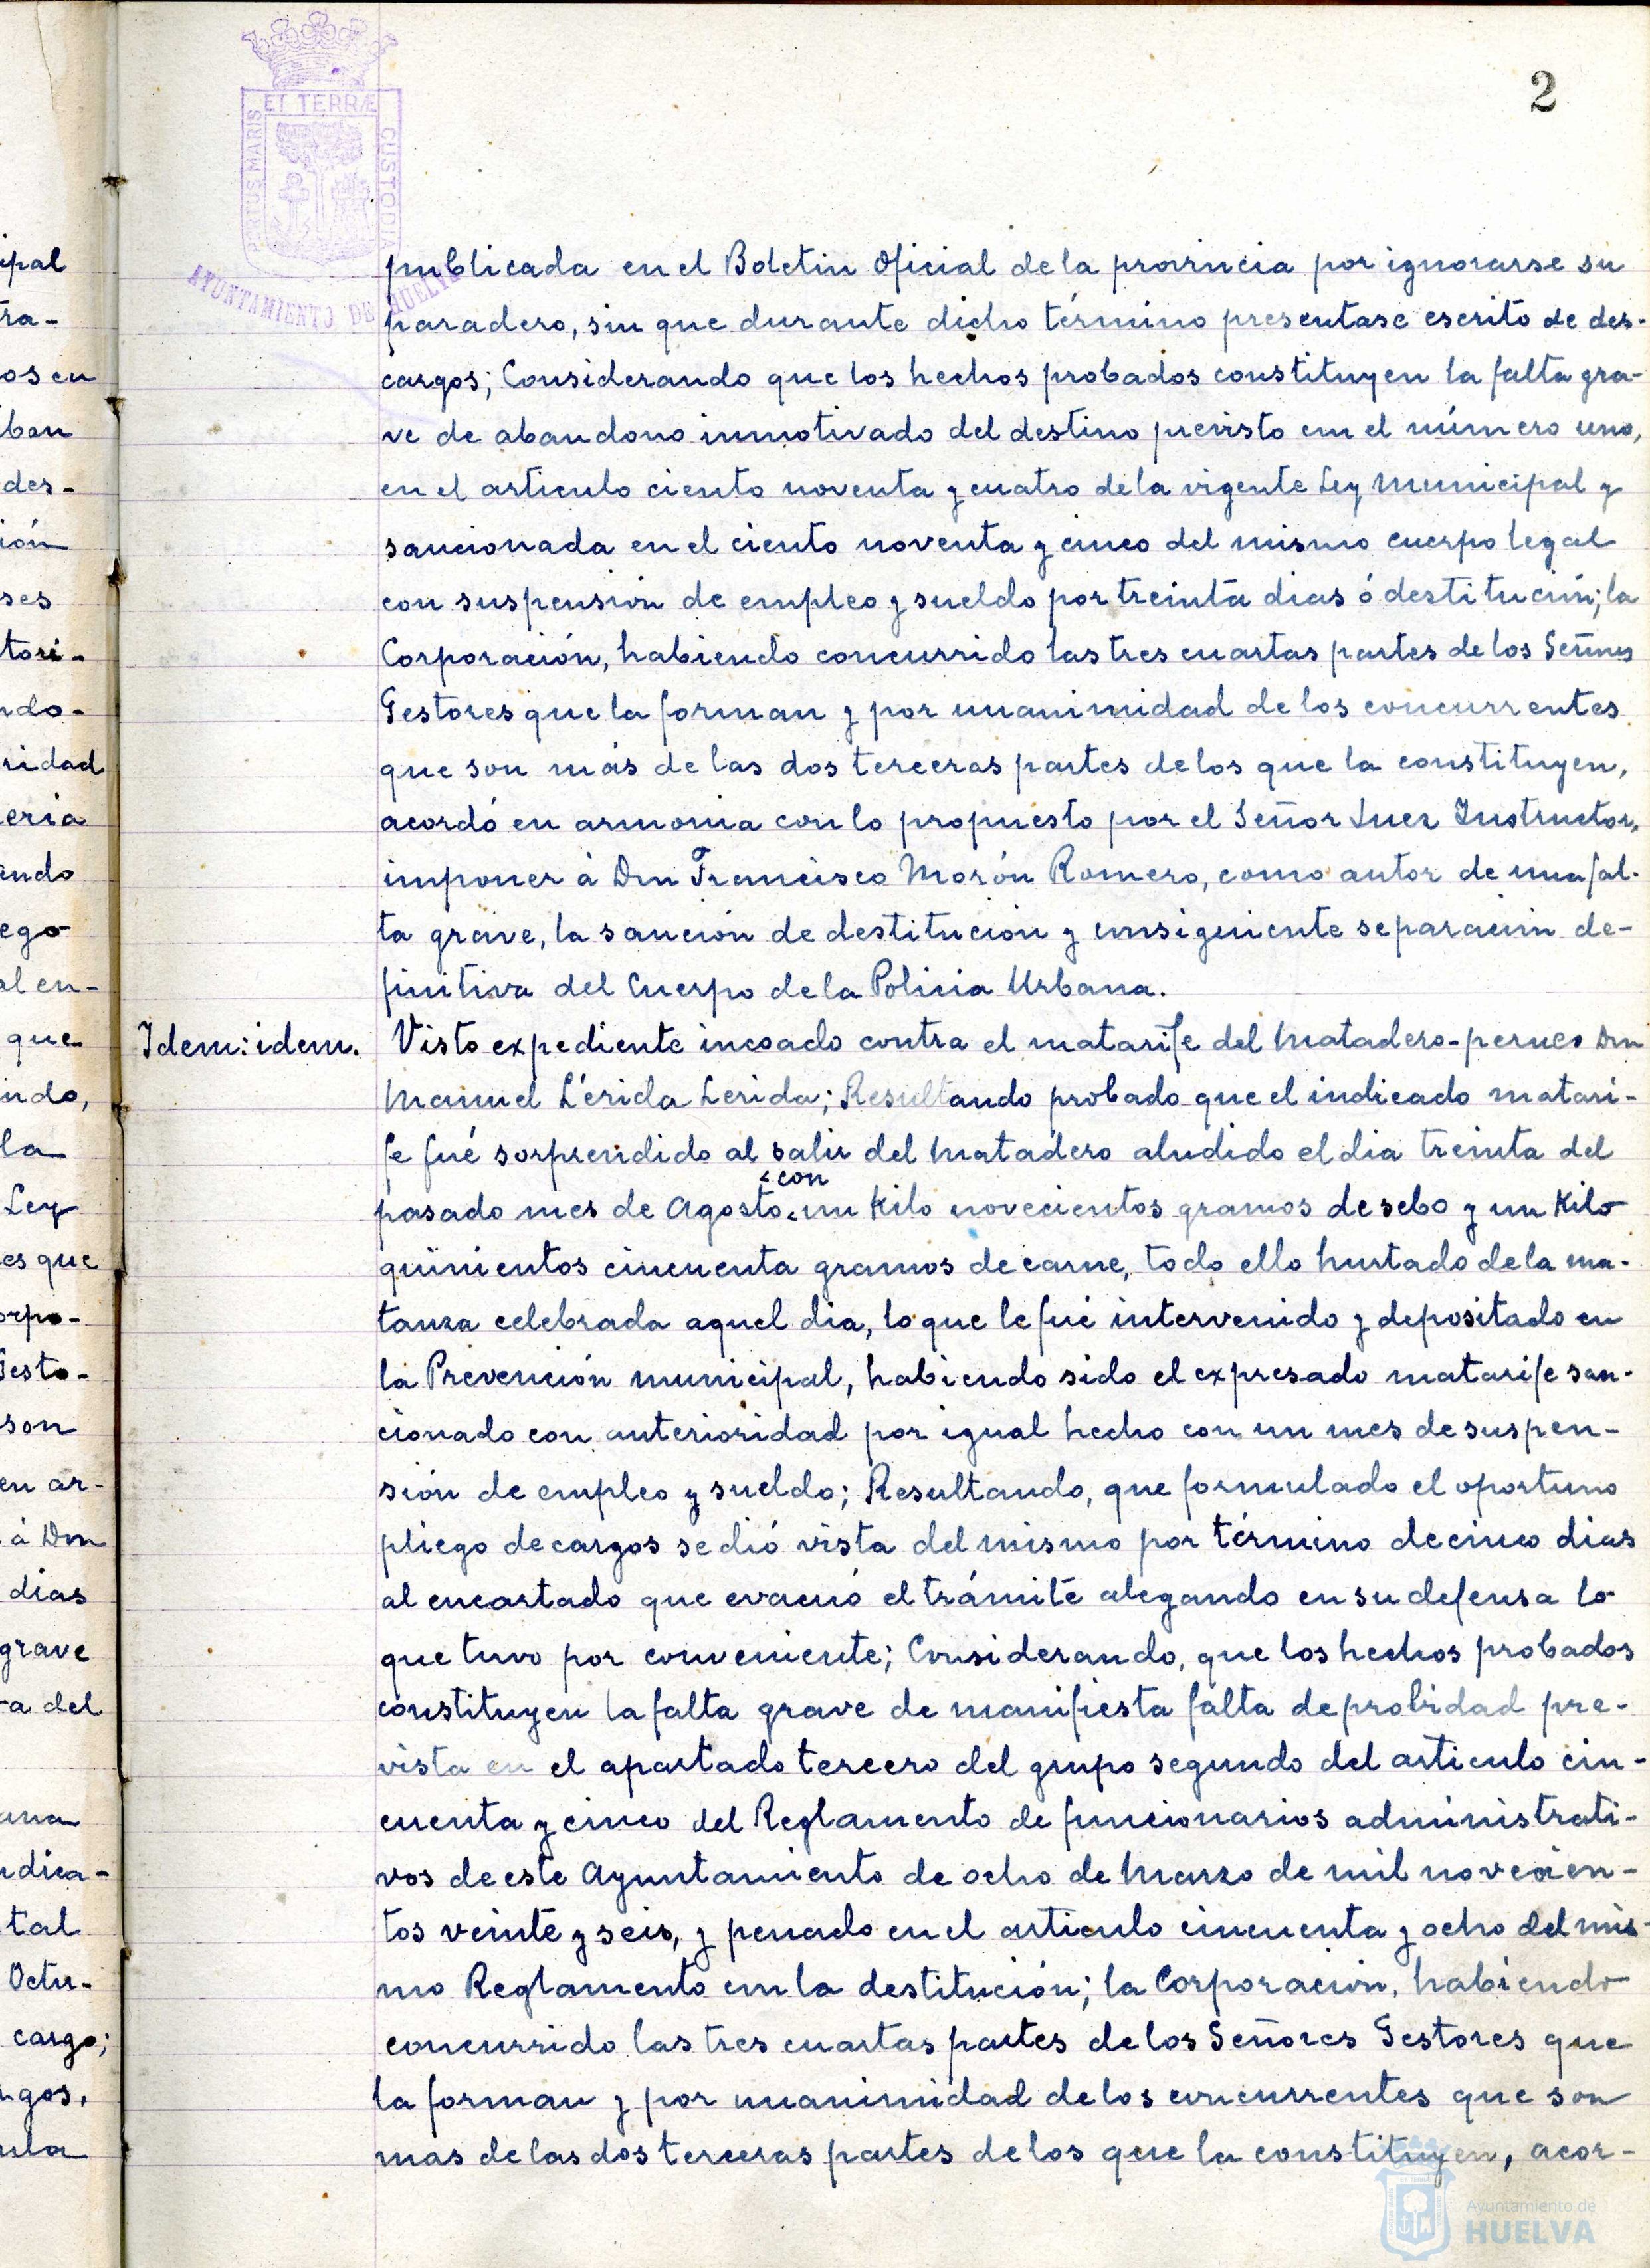 2
ET TERRÆ
PORTUS MARIS
CUSTODIA
AYUNTAMIENTO DE HUELVA
publicada en el Boletin Oficial de la provincia por ignorarse su
paradero, sin que durante dicho término presentase escrito de des-
cargos; Considerando que los hechos probados constituyen la falta gra-
ve de abandono inmotivado del destino previsto em el número uno,
en el articulo ciento noventa y cuatro de la vigente Ley Municipal y
sancionada en el ciento noventa y cinco del mismo cuerpo legal
con suspensión de empleo y sueldo por treinta dias ó destitución; la
Corporación, habiendo concurrido las tres cuartas partes de los Señores
Gestores que la forman y por unanimidad de los concurrentes
que son más de las dos terceras partes de los que la constituyen,
acordó en armonia con lo propuesto por el Señor Juez Instructor,
imponer à Don Francisco Morón Romero, como autor de una fal-
ta grave, la sanción de destitución y consiguiente separación de-
finitiva del Cuerpo de la Policia Urbana.
Idem: idem. Visto expediente incoado contra el matarife del Matadero-perneo Don
Manuel Lérida Lerida; Resultando probado que el indicado matari-
fe fué sorprendido al salir del Matadero aludido el dia treinta del
con
pasado mes de Agosto un Kilo novecientos gramos de sebo y un Kilo
quinientos cincuenta gramos de carne, todo ello hurtado de la ma-
tanza celebrada aquel dia, lo que le fué intervenido y depositado en
la Prevención municipal, habiendo sido el expresado matarife san-
cionado con anterioridad por igual hecho con un mes de suspen-
sión de empleo y sueldo; Resultando, que formulado el oportuno
pliego de cargos se dió vista del mismo por término de cinco dias
al encartado que evacuó el trámite alegando en su defensa lo
que tuvo por conveniente; Considerando, que los hechos probados
constituyen la falta grave de manifiesta falta de probidad pre-
vista en el apartado tercero del grupo segundo del articulo cin-
cuenta y cinco del Reglamento de funcionarios administrati-
vos de este Ayuntamiento de ocho de Marzo de mil novecien-
tos veinte y seis, y penado en el articulo cincuenta y ocho del mis-
mo Reglamento con la destitución; la Corporación, habiendo
concurrido las tres cuartas partes de los Señores Gestores que
la forman y por unanimidad de los concurrentes que son
mas de las dos terceras partes de los que la constituyen, acor-
ipal
tra-
os en
ban
des-
ión
ses
tori-
ndo-
ridad
eria
ando
ego
al en-
que
ndo,
la
Ley
es que
orpo-
Gesto-
son
en ar-
à Don
dias
grave
a del
una
ndica-
tal
Octu-
cargo;
rgos,
ula
Ayuntamiento de
HUELVA